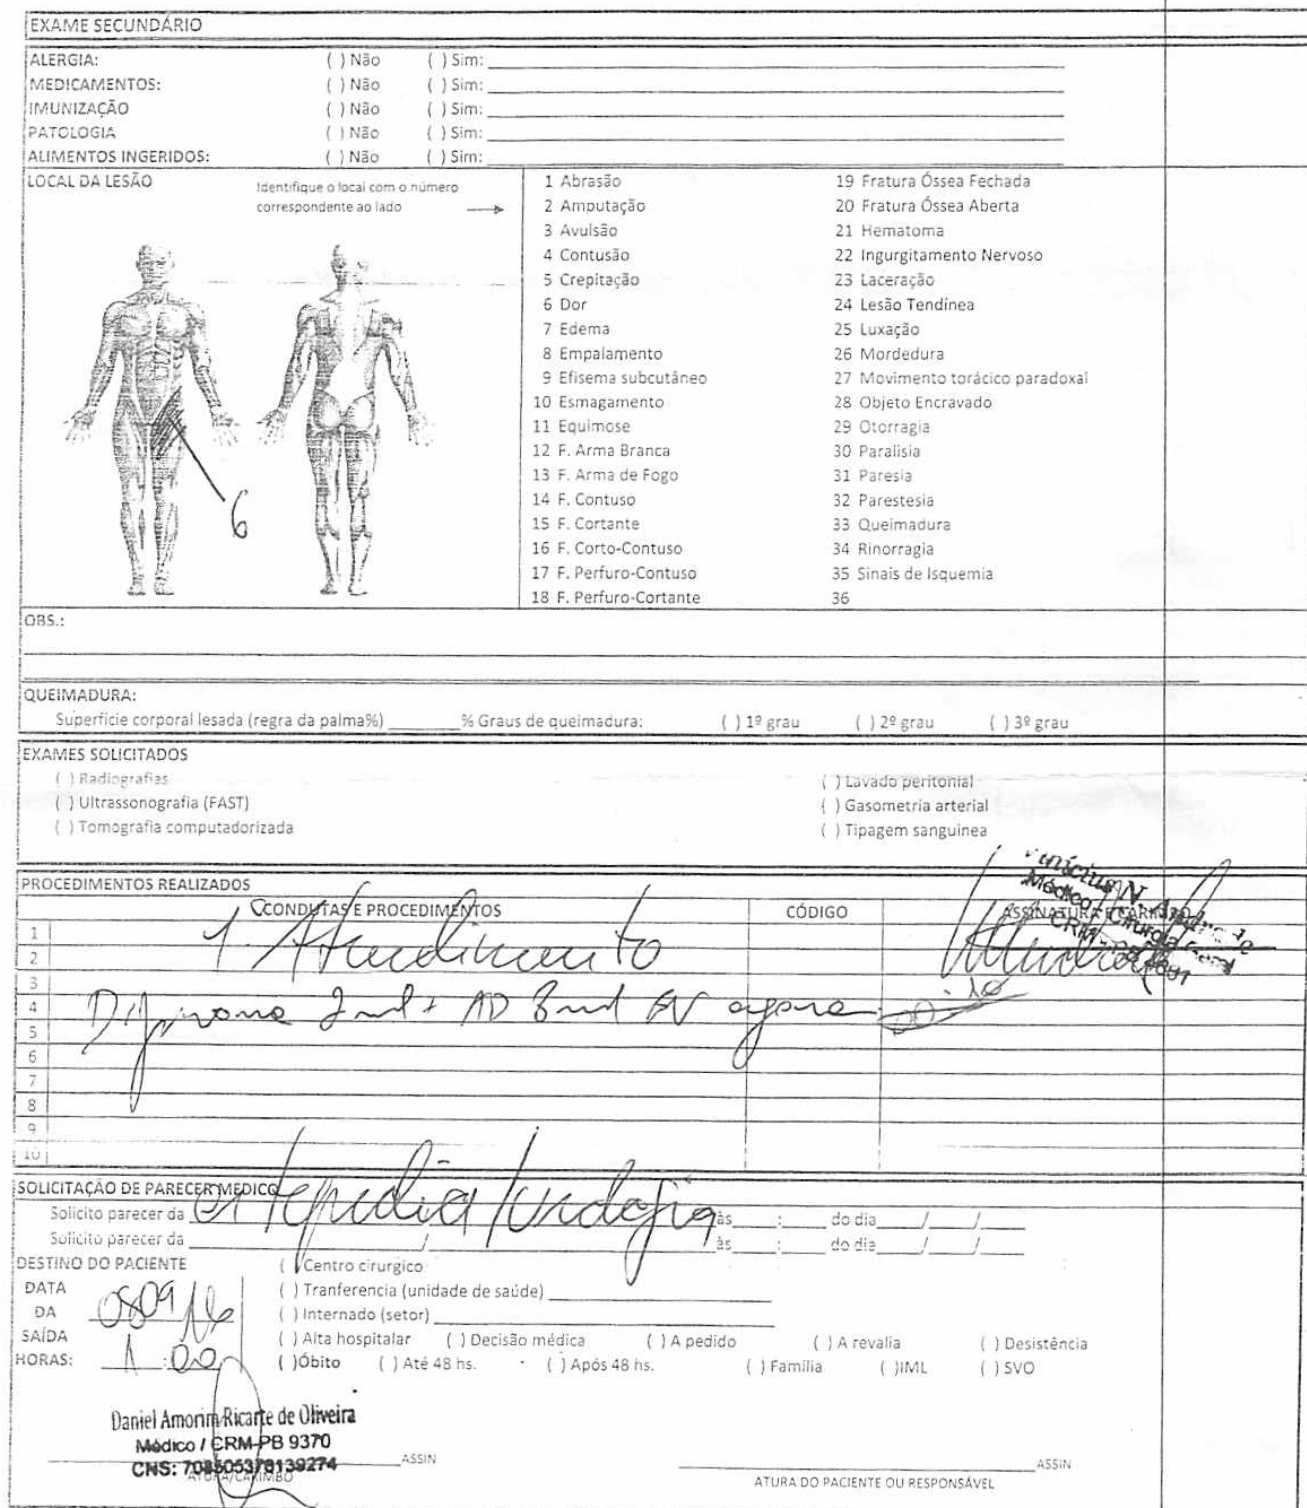 EXAME SECUNDÁRIO
ALERGIA: ( ) Não ( ) Sim:
MEDICAMENTOS: ( ) Não ( ) Sim:
IMUNIZAÇÃO ( ) Não ( ) Sim:
PATOLOGIA ( ) Não ( ) Sim:
ALIMENTOS INGERIDOS: ( ) Não ( ) Sim:
LOCAL DA LESÃO
Identifique o local com o número
correspondente ao lado
6
1 Abrasão
2 Amputação
3 Avulsão
4 Contusão
5 Crepitação
6 Dor
7 Edema
8 Empalamento
9 Efisema subcutâneo
10 Esmagamento
11 Equimose
12 F. Arma Branca
13 F. Arma de Fogo
14 F. Contuso
15 F. Cortante
16 F. Corto-Contuso
17 F. Perfuro-Contuso
18 F. Perfuro-Cortante
19 Fratura Óssea Fechada
20 Fratura Óssea Aberta
21 Hematoma
22 Ingurgitamento Nervoso
23 Laceração
24 Lesão Tendínea
25 Luxação
26 Mordedura
27 Movimento torácico paradoxal
28 Objeto Encravado
29 Otorragia
30 Paralisia
31 Paresia
32 Parestesia
33 Queimadura
34 Rinorragia
35 Sinais de Isquemia
36
OBS.:
QUEIMADURA:
Superfície corporal lesada (regra da palma%) ________% Graus de queimadura: ( ) 1º grau ( ) 2º grau ( ) 3º grau
EXAMES SOLICITADOS
( ) Radiografias ( ) Lavado peritonial
( ) Ultrassonografia (FAST) ( ) Gasometria arterial
( ) Tomografia computadorizada ( ) Tipagem sanguinea
PROCEDIMENTOS REALIZADOS
CCONDUTAS E PROCEDIMENTOS CÓDIGO ASSINATURA E CARIMBO
Vinícius N. Andrade
Médico - Cirurgia Geral
1
2
1. Atendimento
3
4 Dipirona 2ml + AD 8ml EV agora
5
6
7
8
9
10
SOLICITAÇÃO DE PARECER MÉDICO
Solicito parecer da ortopedia/urologia às ___:___ do dia___/___/___
Solicito parecer da ____/____ às ___:___ do dia___/___/___
DESTINO DO PACIENTE ( ) Centro cirurgico
DATA DA SAÍDA 08/09/16
( ) Tranferencia (unidade de saúde)
( ) Internado (setor)
( ) Alta hospitalar ( ) Decisão médica ( ) A pedido ( ) A revalia ( ) Desistência
HORAS: 1:00 ( )Óbito ( ) Até 48 hs. ( ) Após 48 hs. ( ) Família ( )IML ( ) SVO
Daniel Amorim Ricarte de Oliveira
Médico / CRM-PB 9370
CNS: 708505378139274
ASSIN
ATURA/CARIMBO
ASSIN
ATURA DO PACIENTE OU RESPONSÁVEL